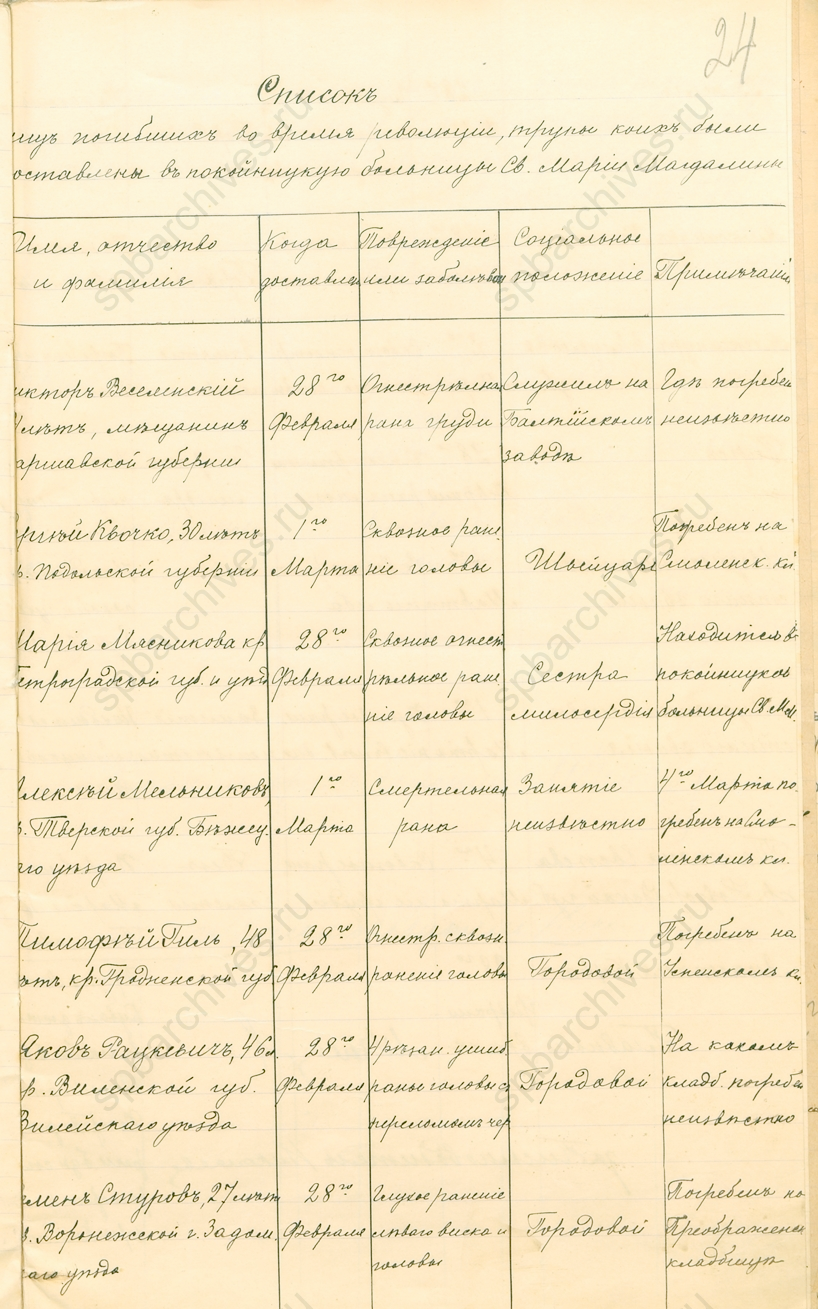 24
Списокъ
лицъ погибшихъ во время революціи, трупы коихъ были
доставлены въ покойницкую больницы Св. Маріи Магдалины
Имя, отчество
и фамилія
Когда
доставлен
Поврежденіе
или заболѣван
Соціальное
положеніе
Примѣчаніе
икторъ Веселенскій
лѣтъ, мѣщанинъ
аршавской губерніи
28го
Февраля
Огнестрѣльна
рана груди
Служилъ на
Балтійскомъ
заводѣ
Гдѣ погребен
неизвѣстно
ергѣй Квочко, 30 лѣтъ
р. Подольской губерніи
1го
Марта
Сквозное ране
ніе головы
Швейцаръ
Погребенъ на
Смоленск. кл
Марія Мясникова кр
Петроградской губ. и уѣзд
28го
Февраля
Сквозное огнест
рѣльное ране
ніе головы
Сестра
милосердія
Находится въ
покойницкой
больницы Св. М.М.
Алексѣй Мельниковъ,
р. Тверской губ. Бѣжец.
го уѣзда
1го
Марта
Смертельная
рана
Занятіе
неизвѣстно
4го Марта по.
гребенъ на Смо-
ленскомъ кл.
Тимофѣй Гиль, 48
лѣтъ, кр. Гродненской губ
28го
Февраля
Огнестр. сквозн.
раненіе головы
Городовой
Погребенъ на
Успенскомъ кл.
Яковъ Рацкевичъ, 46 л.
кр. Виленской губ.
Вилейскаго уѣзда
28го
Февраля
4 рѣзан. ушиб.
раны головы съ
переломомъ чер
Городовой
На какомъ
кладб. погребен
неизвѣстно
еменъ Стуровъ, 27 лѣтъ
р. Воронежской г. Задон.
аго уѣзда
28го
Февраля
Глухое раненіе
лѣваго виска и
головы
Городовой
Погребенъ на
Преображенск
кладбищѣ
spbarchives.ru
spbarchives.ru
spbarchives.ru
spbarchives.ru
spbarchives.ru
spbarchives.ru